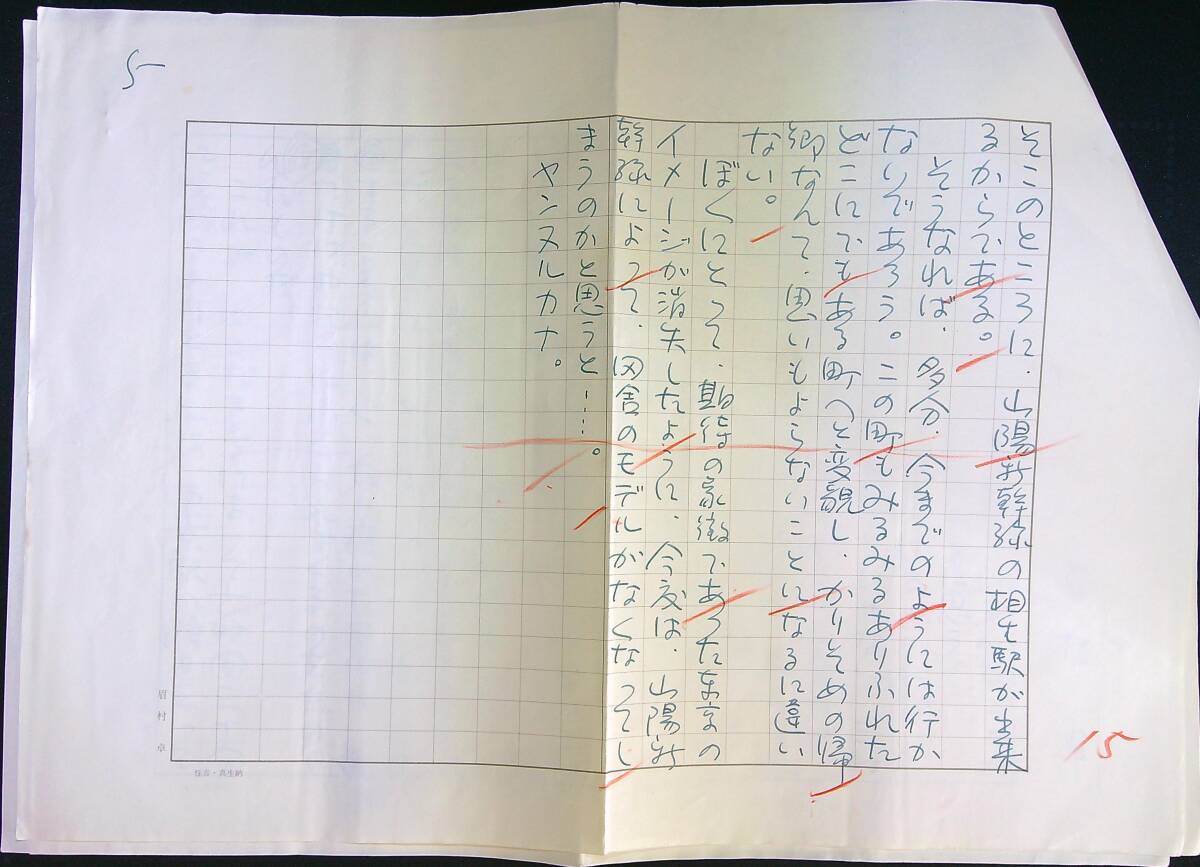 5
そこのところに、山陽新幹線の相生駅が出来
るからである。
そうなれば、多分、今までのようには行か
なりであろう。この町もみるみるありふれた
どこにでもある町へと変貌し、かりそめの帰
郷なんて、思いもよらないことになるに違い
ない。
ぼくにとって、期待の象徴であった東京の
イメージが消失したように、今度は、山陽新
幹線によって、田舎のモデルがなくなってし
まうのかと思うと……。
ヤンヌルカナ。
15
眉村卓